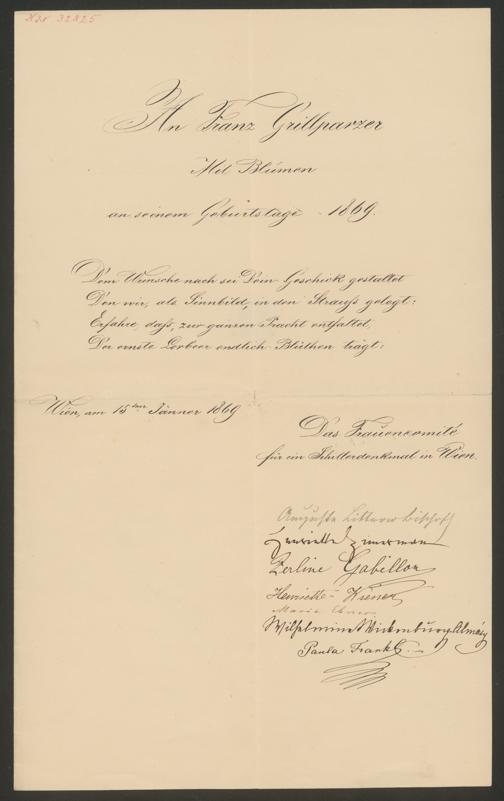 An Franz Grillparzer
Mit Blumen
an seinem Geburtstage 1869.
Dem Wunsche nach sei Dein Geschick gestaltet
Den wir, als Sinnbild, in den Strauß gelegt:
Erfahre daß, zur ganzen Pracht entfaltet,
Der ernste Lorbeer endlich Blüthen trägt:
Wien, am 15ten Jänner 1869
Das Frauencomité
für ein Schillerdenkmal in Wien.
Auguste Littrow Bischoff
Henriette Zimerman
Zerline Gabillon
Henriette Wiener
Marie Ebner
Wilhelmine Wickenburg Almásy
Paula Frankl.